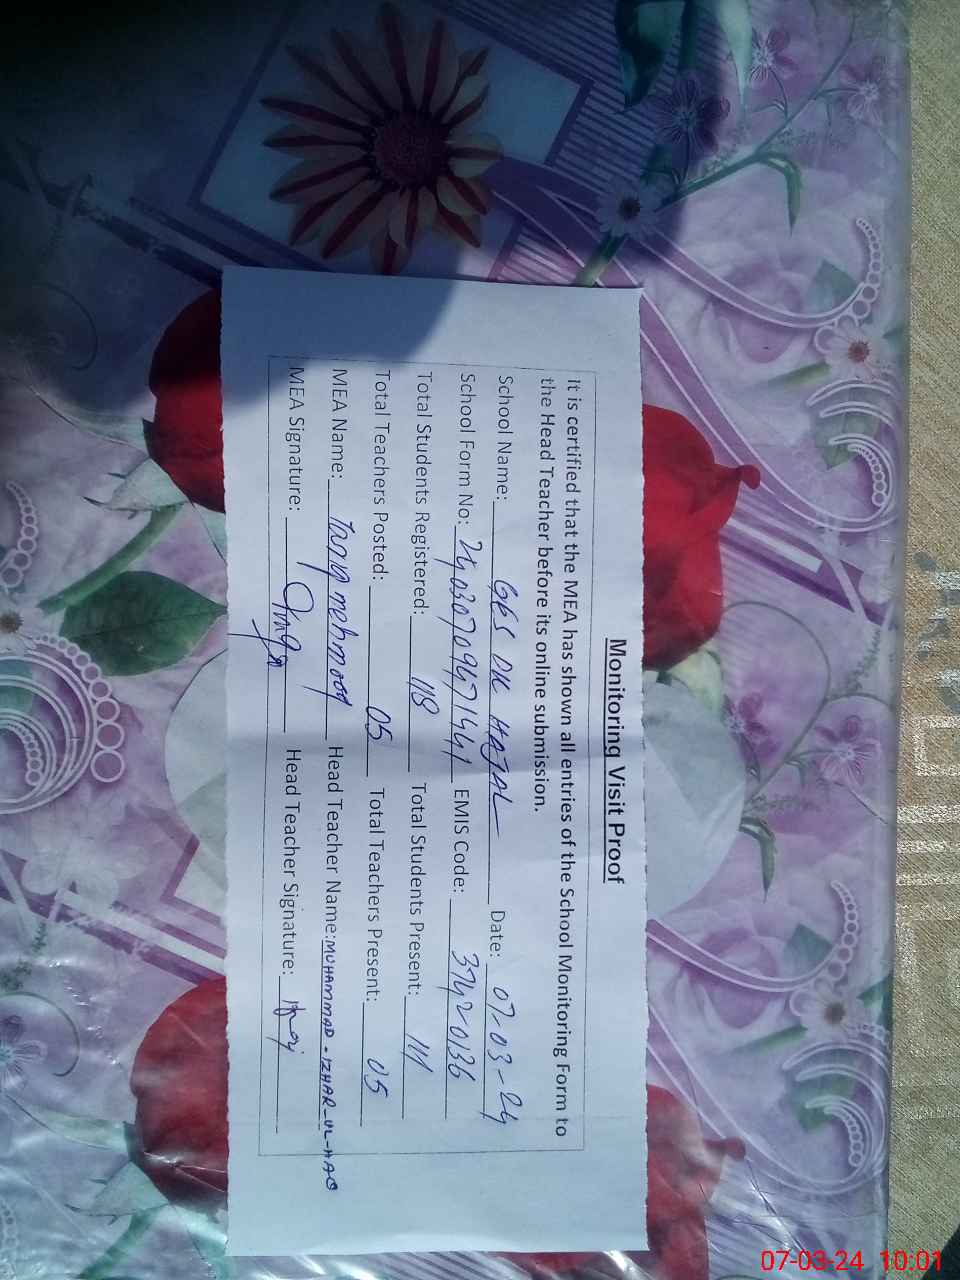 Monitoring Visit Proof
It is certified that the MEA has shown all entries of the School Monitoring Form to
the Head Teacher before its online submission.
School Name: GES DK HAJAL Date: 07-03-24
School Form No: EMIS Code: 37420136
Total Students Registered: 118 Total Students Present: 111
Total Teachers Posted: 05 Total Teachers Present: 05
MEA Name: Tariq mehmood Head Teacher Name: MUHAMMAD-IZHAR-UL-HAQ
MEA Signature: Head Teacher Signature:
07-03-24 10:01